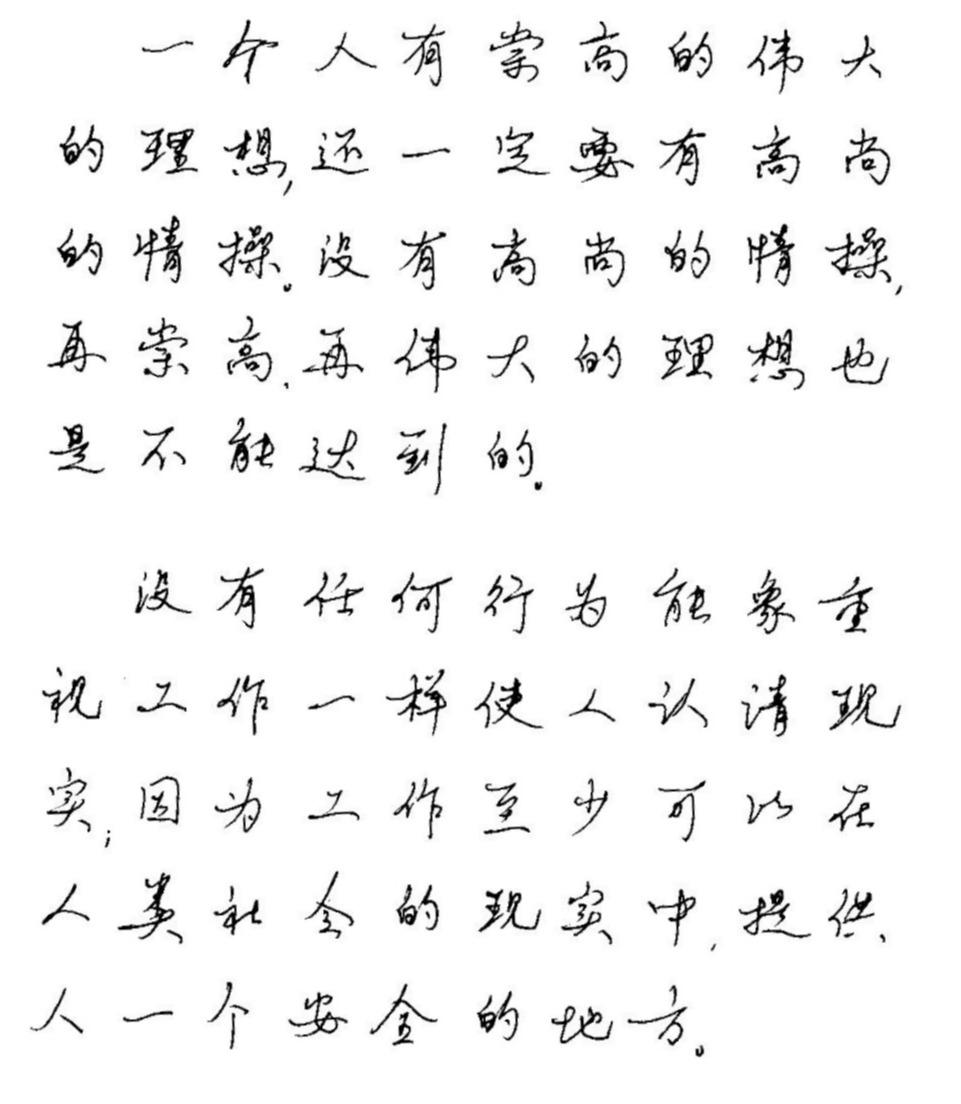 一个人有崇高的伟大
的理想,还一定要有高尚
的情操。没有高尚的情操,
再崇高,再伟大的理想也
是不能达到的。
没有任何行为能象重
视工作一样使人认清现
实;因为工作至少可以在
人类社会的现实中,提供
人一个安全的地方。